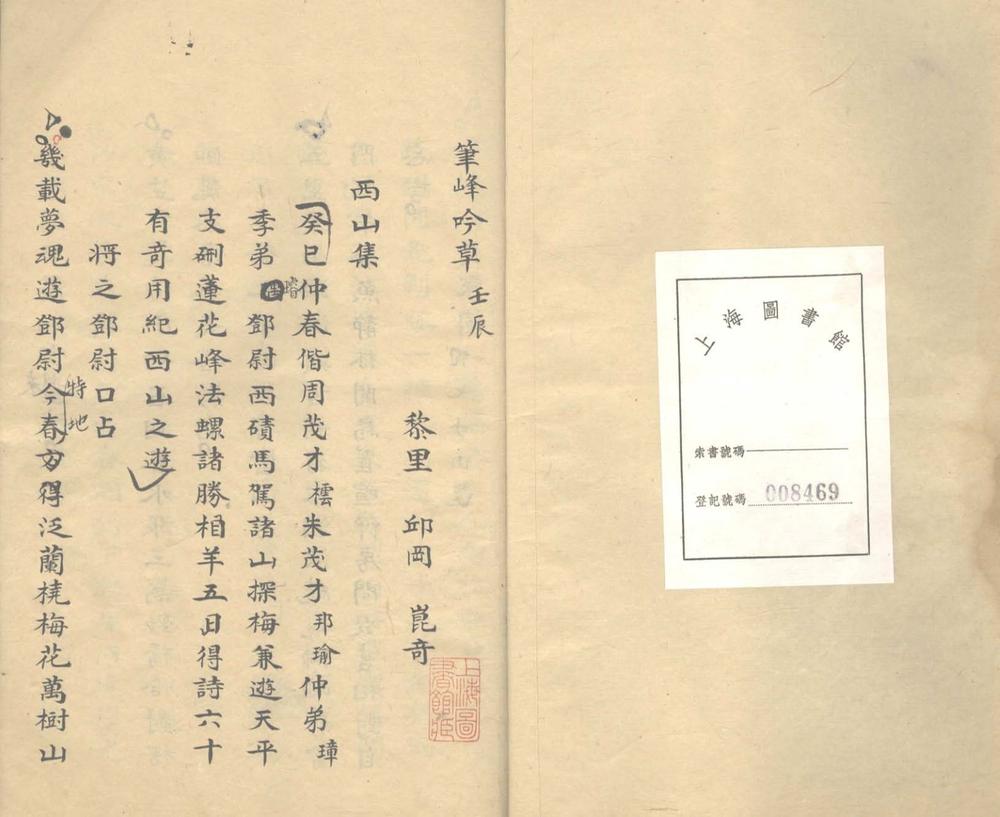 上海圖書館
索書號碼
登記號碼 008469
筆峰吟草 壬辰
黎里 邱岡 崑奇
上海圖書館藏
西山集
癸巳仲春偕周茂才橒朱茂才邦瑜仲弟璋
季弟璿鄧尉西磧馬駕諸山探梅兼遊天平
支硎蓮花峰法螺諸勝相羊五日得詩六十
有奇用紀西山之遊
將之鄧尉口占
幾載夢魂遊鄧尉今春方特地得泛蘭橈梅花萬樹山